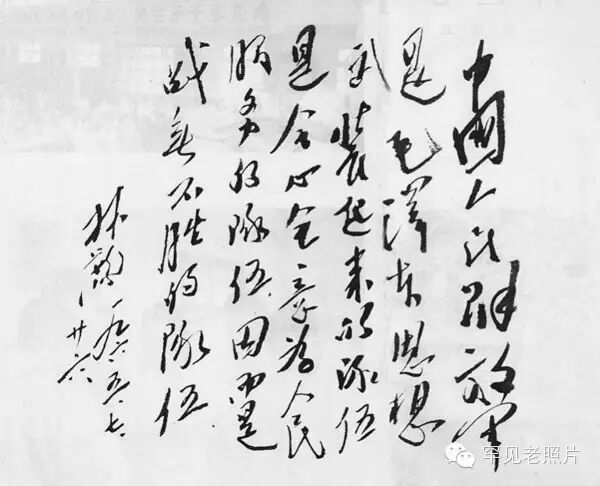 中國人民解放军
是毛澤东思想
武裝起来的隊伍
是全心全意为人民
服务的隊伍,因而是
战无不胜的隊伍.
林彪 一九六五、七、
廿六
罕见老照片